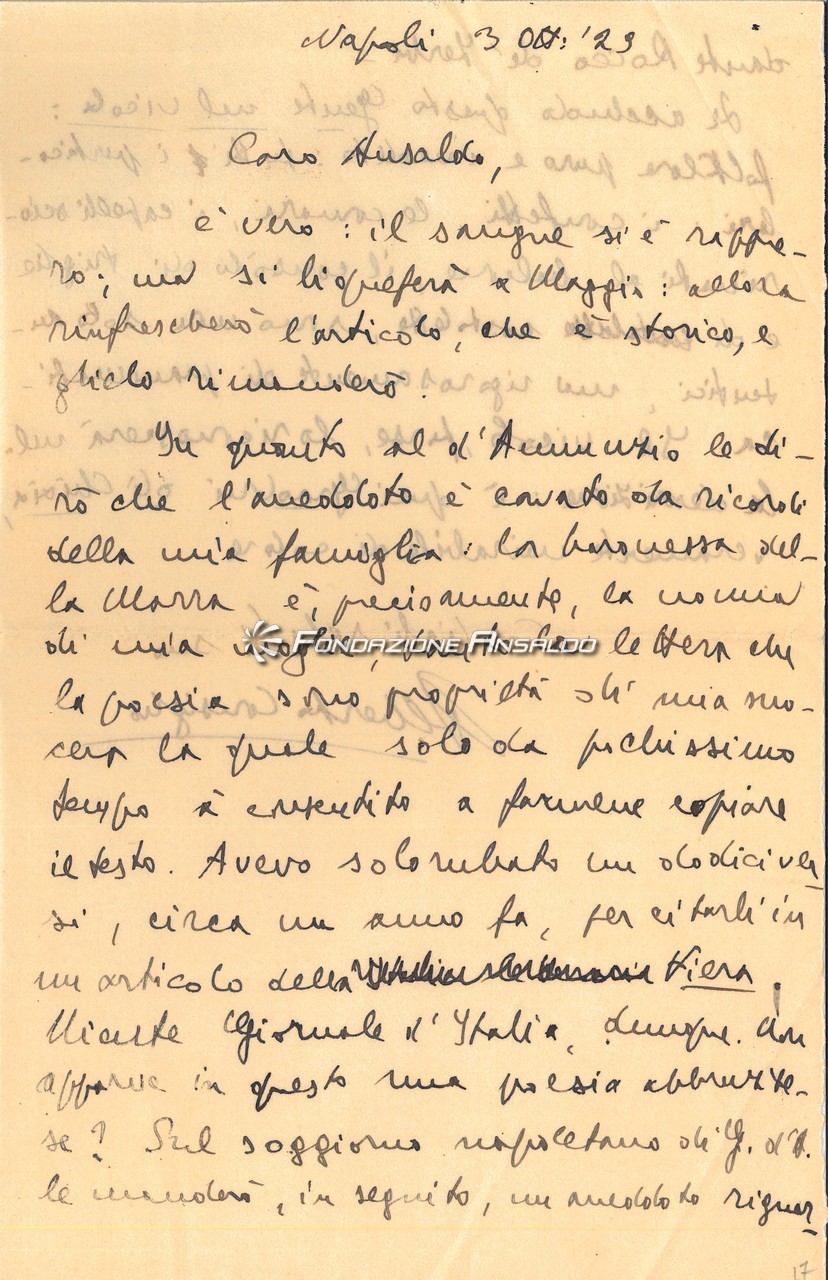 Napoli 3 Ott: '29
Caro Ansaldo,
è vero: il sangue si è rappre-
so; ma si liqueferà a Maggio: allora
rinfrescherò l'articolo, che è storico, e
glielo rimanderò.
In quanto al d'Annunzio le di-
rò che l'aneddoto è cavato da ricordi
della mia famiglia: la baronessa del-
la Marra è, precisamente, la nonna
di mia moglie, tanto la lettera che
FONDAZIONE ANSALDO
la poesia sono proprietà di mia suo-
cera la quale solo da pochissimo
tempo à consentito a farmene copiare
il testo. Avevo solo rubato un dodici ver-
si, circa un anno fa, per citarli in
un articolo della Fiera.
Niente Giornale d'Italia, dunque. Non
apparve in questo una poesia abbruzze-
se? Sul soggiorno napoletano di G. d'A.
le manderò, in seguito, un aneddoto riguar-
17